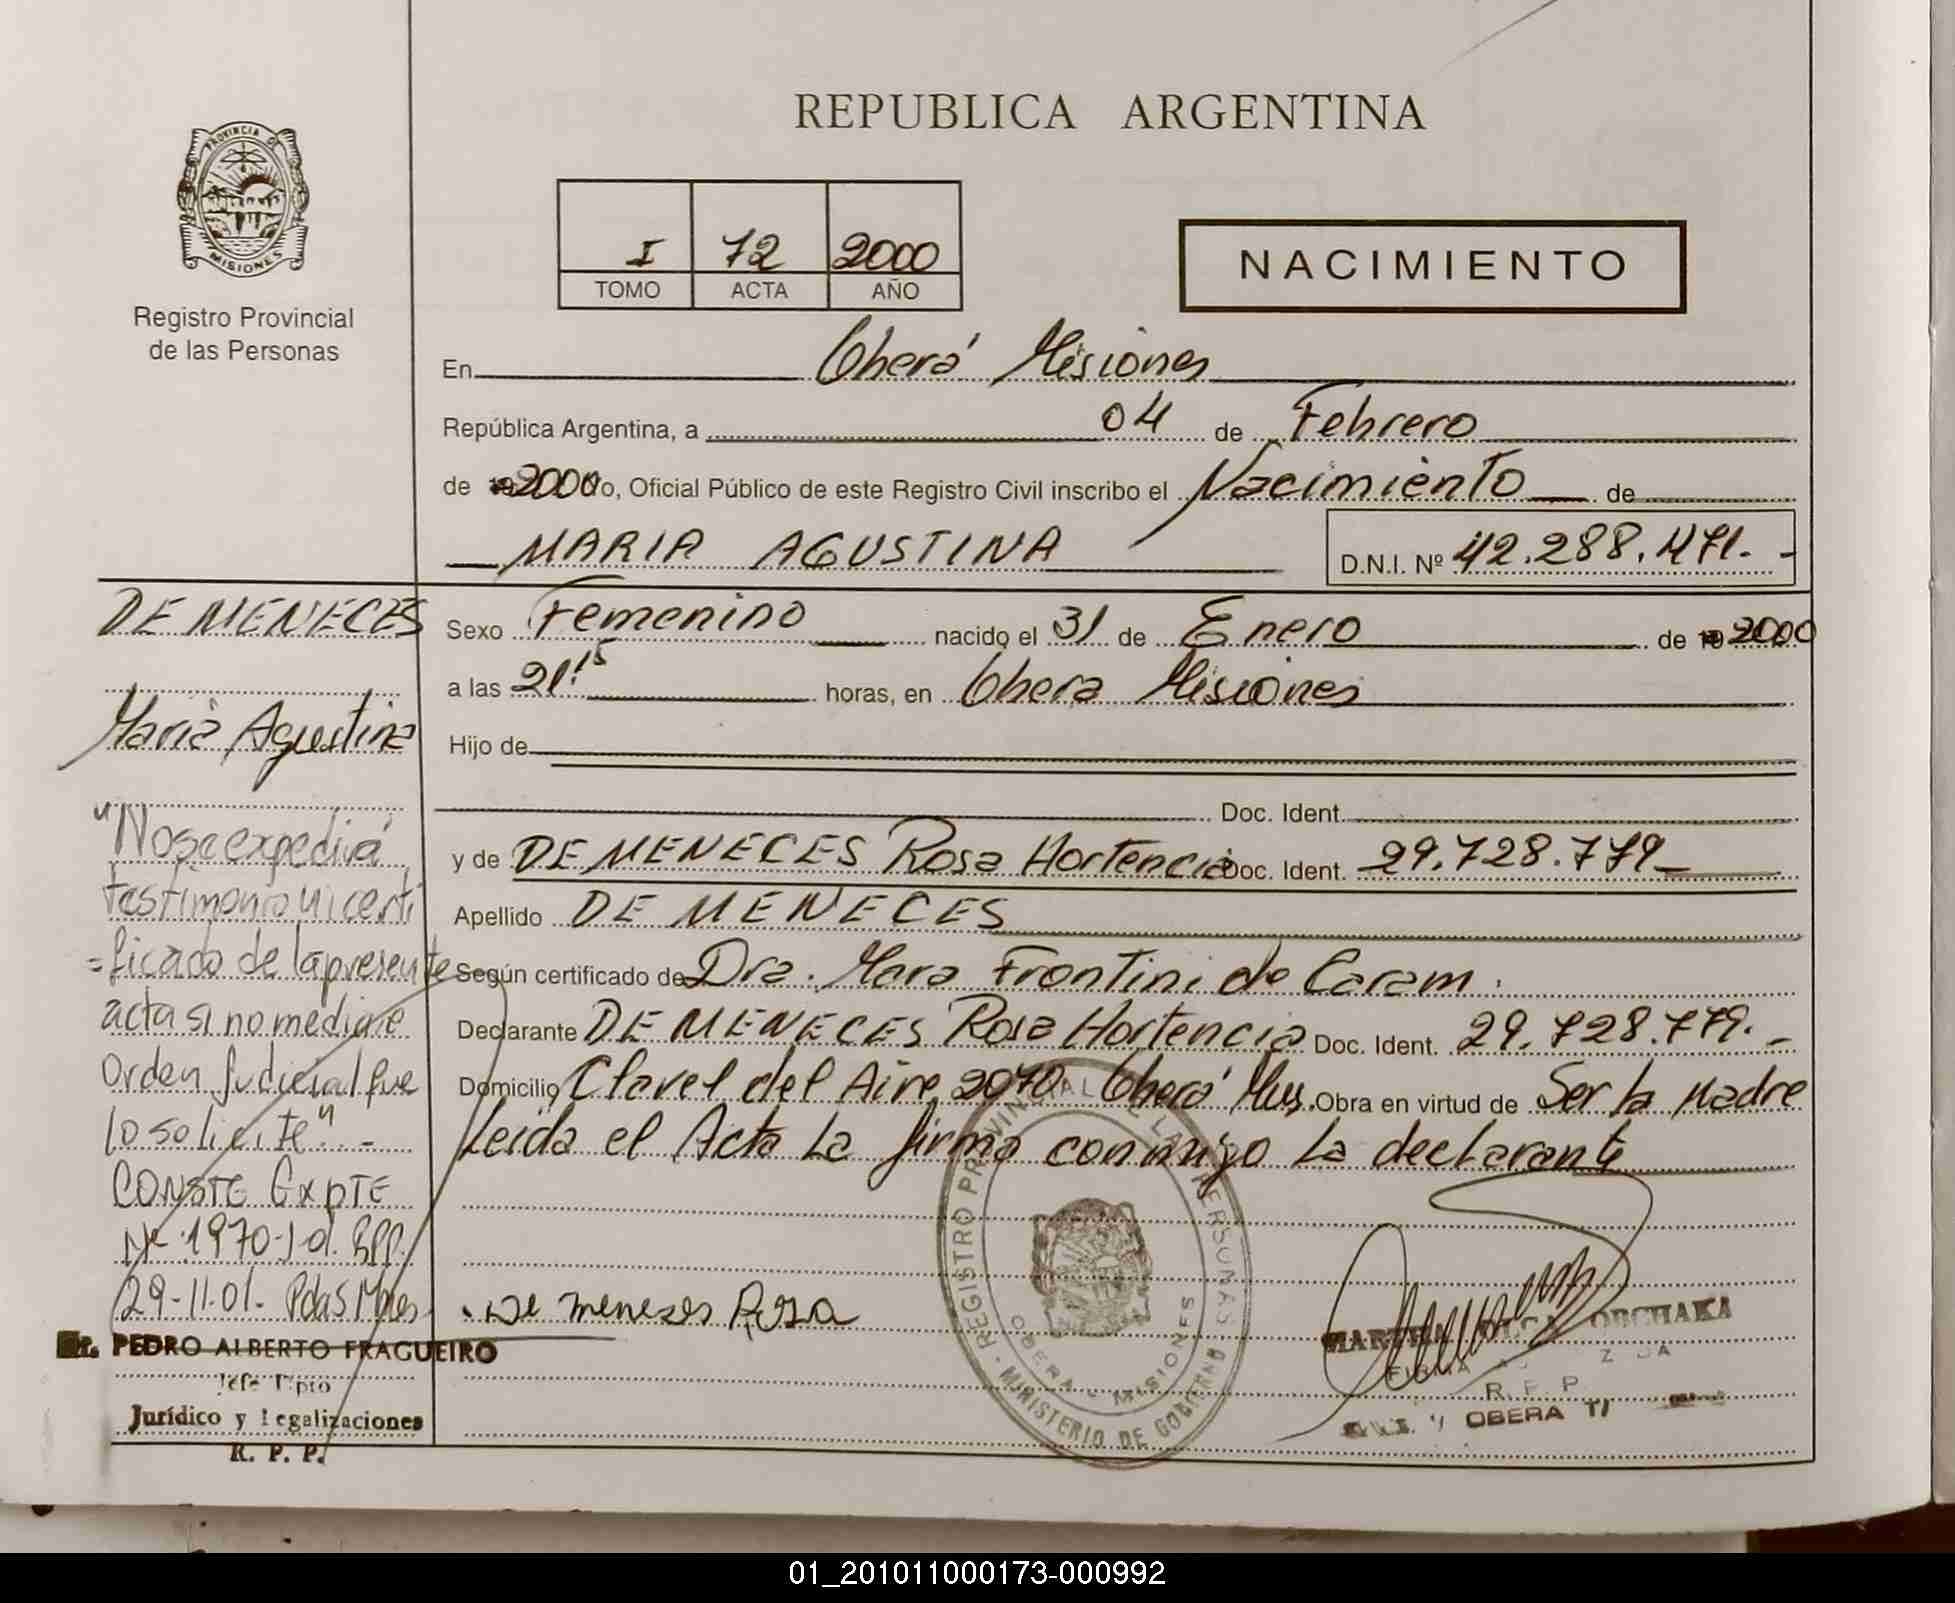 REPUBLICA ARGENTINA
PROVINCIA DE
MISIONES
Registro Provincial
de las Personas
I 72 2000
TOMO ACTA AÑO
NACIMIENTO
En Oberá Misiones
República Argentina, a 04 de Febrero
de 2000 yo, Oficial Público de este Registro Civil inscribo el Nacimiento de
MARIA AGUSTINA D.N.I. Nº 42.288.471.-
DE MENECES
Maria Agustina
Sexo Femenino nacido el 31 de Enero de 19 2000
a las 21:15 horas, en Obera Misiones
Hijo de
Doc. Ident.
y de DE MENECES Rosa Hortencia Doc. Ident. 29.728.779
Apellido DE MENECES
Según certificado de Dra. Mara Frontini de Caram.
Declarante DE MENECES Rosa Hortencia Doc. Ident. 29.728.779.-
Domicilio Clavel del Aire 2070 Oberá Mns. Obra en virtud de Ser la Madre
Leida el Acta La firma conmigo La declarante
"No se expedirá
testimonio ni certi
=ficado de la presente
acta si no mediare
Orden Judicial que
lo solicite".-
CONSTE Expte
Nº 1970-J-01. RPP.
29-11-01. Pdas Mnes
Dr. PEDRO ALBERTO FRAGUEIRO
Jefe Dpto
Jurídico y Legalizaciones
R. P. P.
De meneses Rosa
REGISTRO PROVINCIAL DE LAS PERSONAS
MINISTERIO DE GOBIERNO
OBERA - MISIONES
MARTHA OLGA
FIRMA
R. P. P.
OBERA
01_201011000173-000992